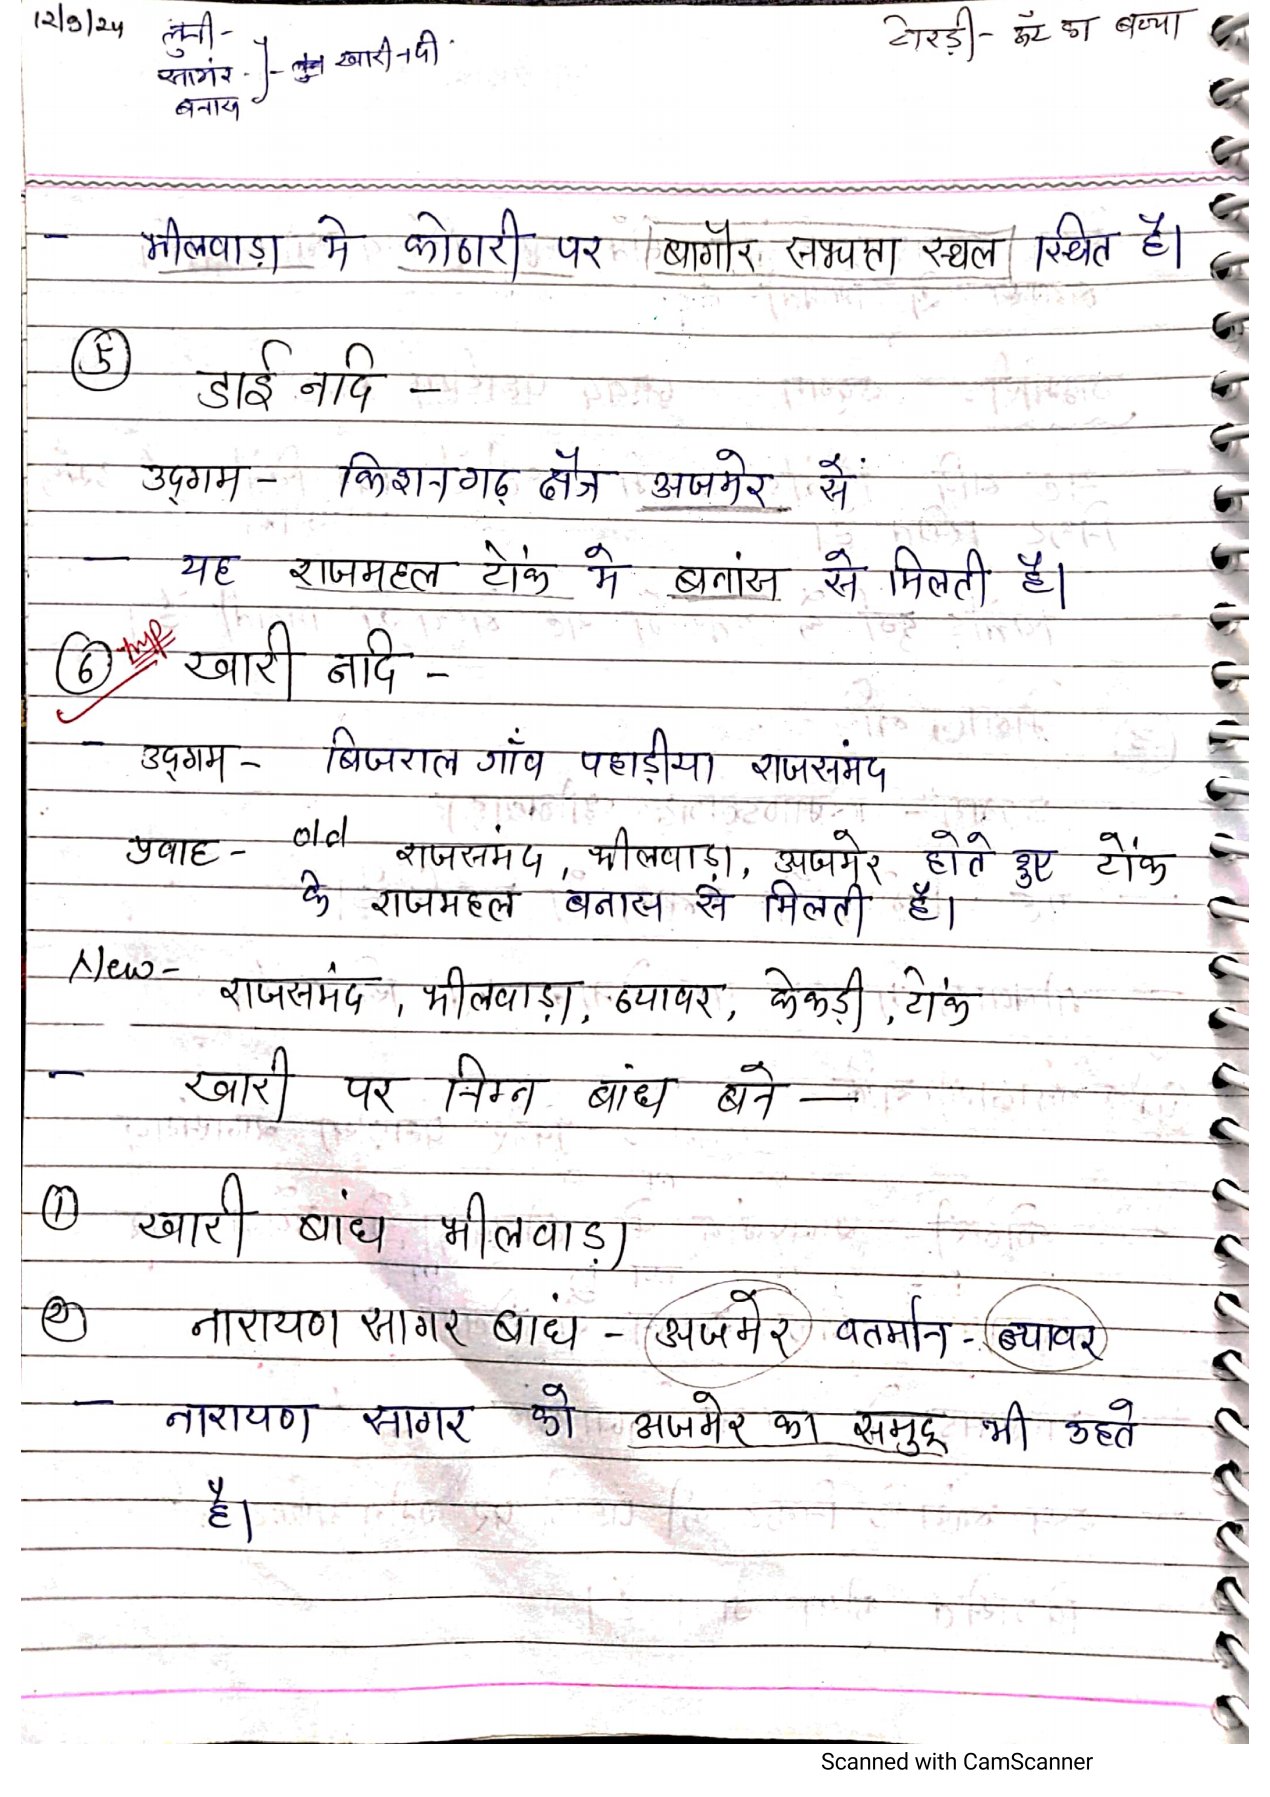 12/9/24
लुनी-
सांभर - }- खारी नदी
बनास
टोरड़ी - ऊँट का बच्चा
- भीलवाड़ा मे कोठारी पर बागौर सभ्यता स्थल स्थित है।
5 डाई नदि -
उद्गम - किशनगढ़ क्षैत्र अजमेर सें
- यह राजमहल टोंक मे बनांस से मिलती है।
6 Imp खारी नदि -
- उद्गम - बिजराल गाँव पहाड़ीया राजसमंद
प्रवाह - old राजसमंद, भीलवाड़ा, अजमेर होते हुए टोंक
के राजमहल बनास से मिलती है।
New - राजसमंद, भीलवाड़ा, ब्यावर, केकड़ी, टोंक
- खारी पर निम्न बांध बने —
1 खारी बांध भीलवाड़ा
2 नारायण सागर बांध - अजमेर वतर्मान - ब्यावर
- नारायण सागर को अजमेर का समुद्र भी कहते
है।
Scanned with CamScanner